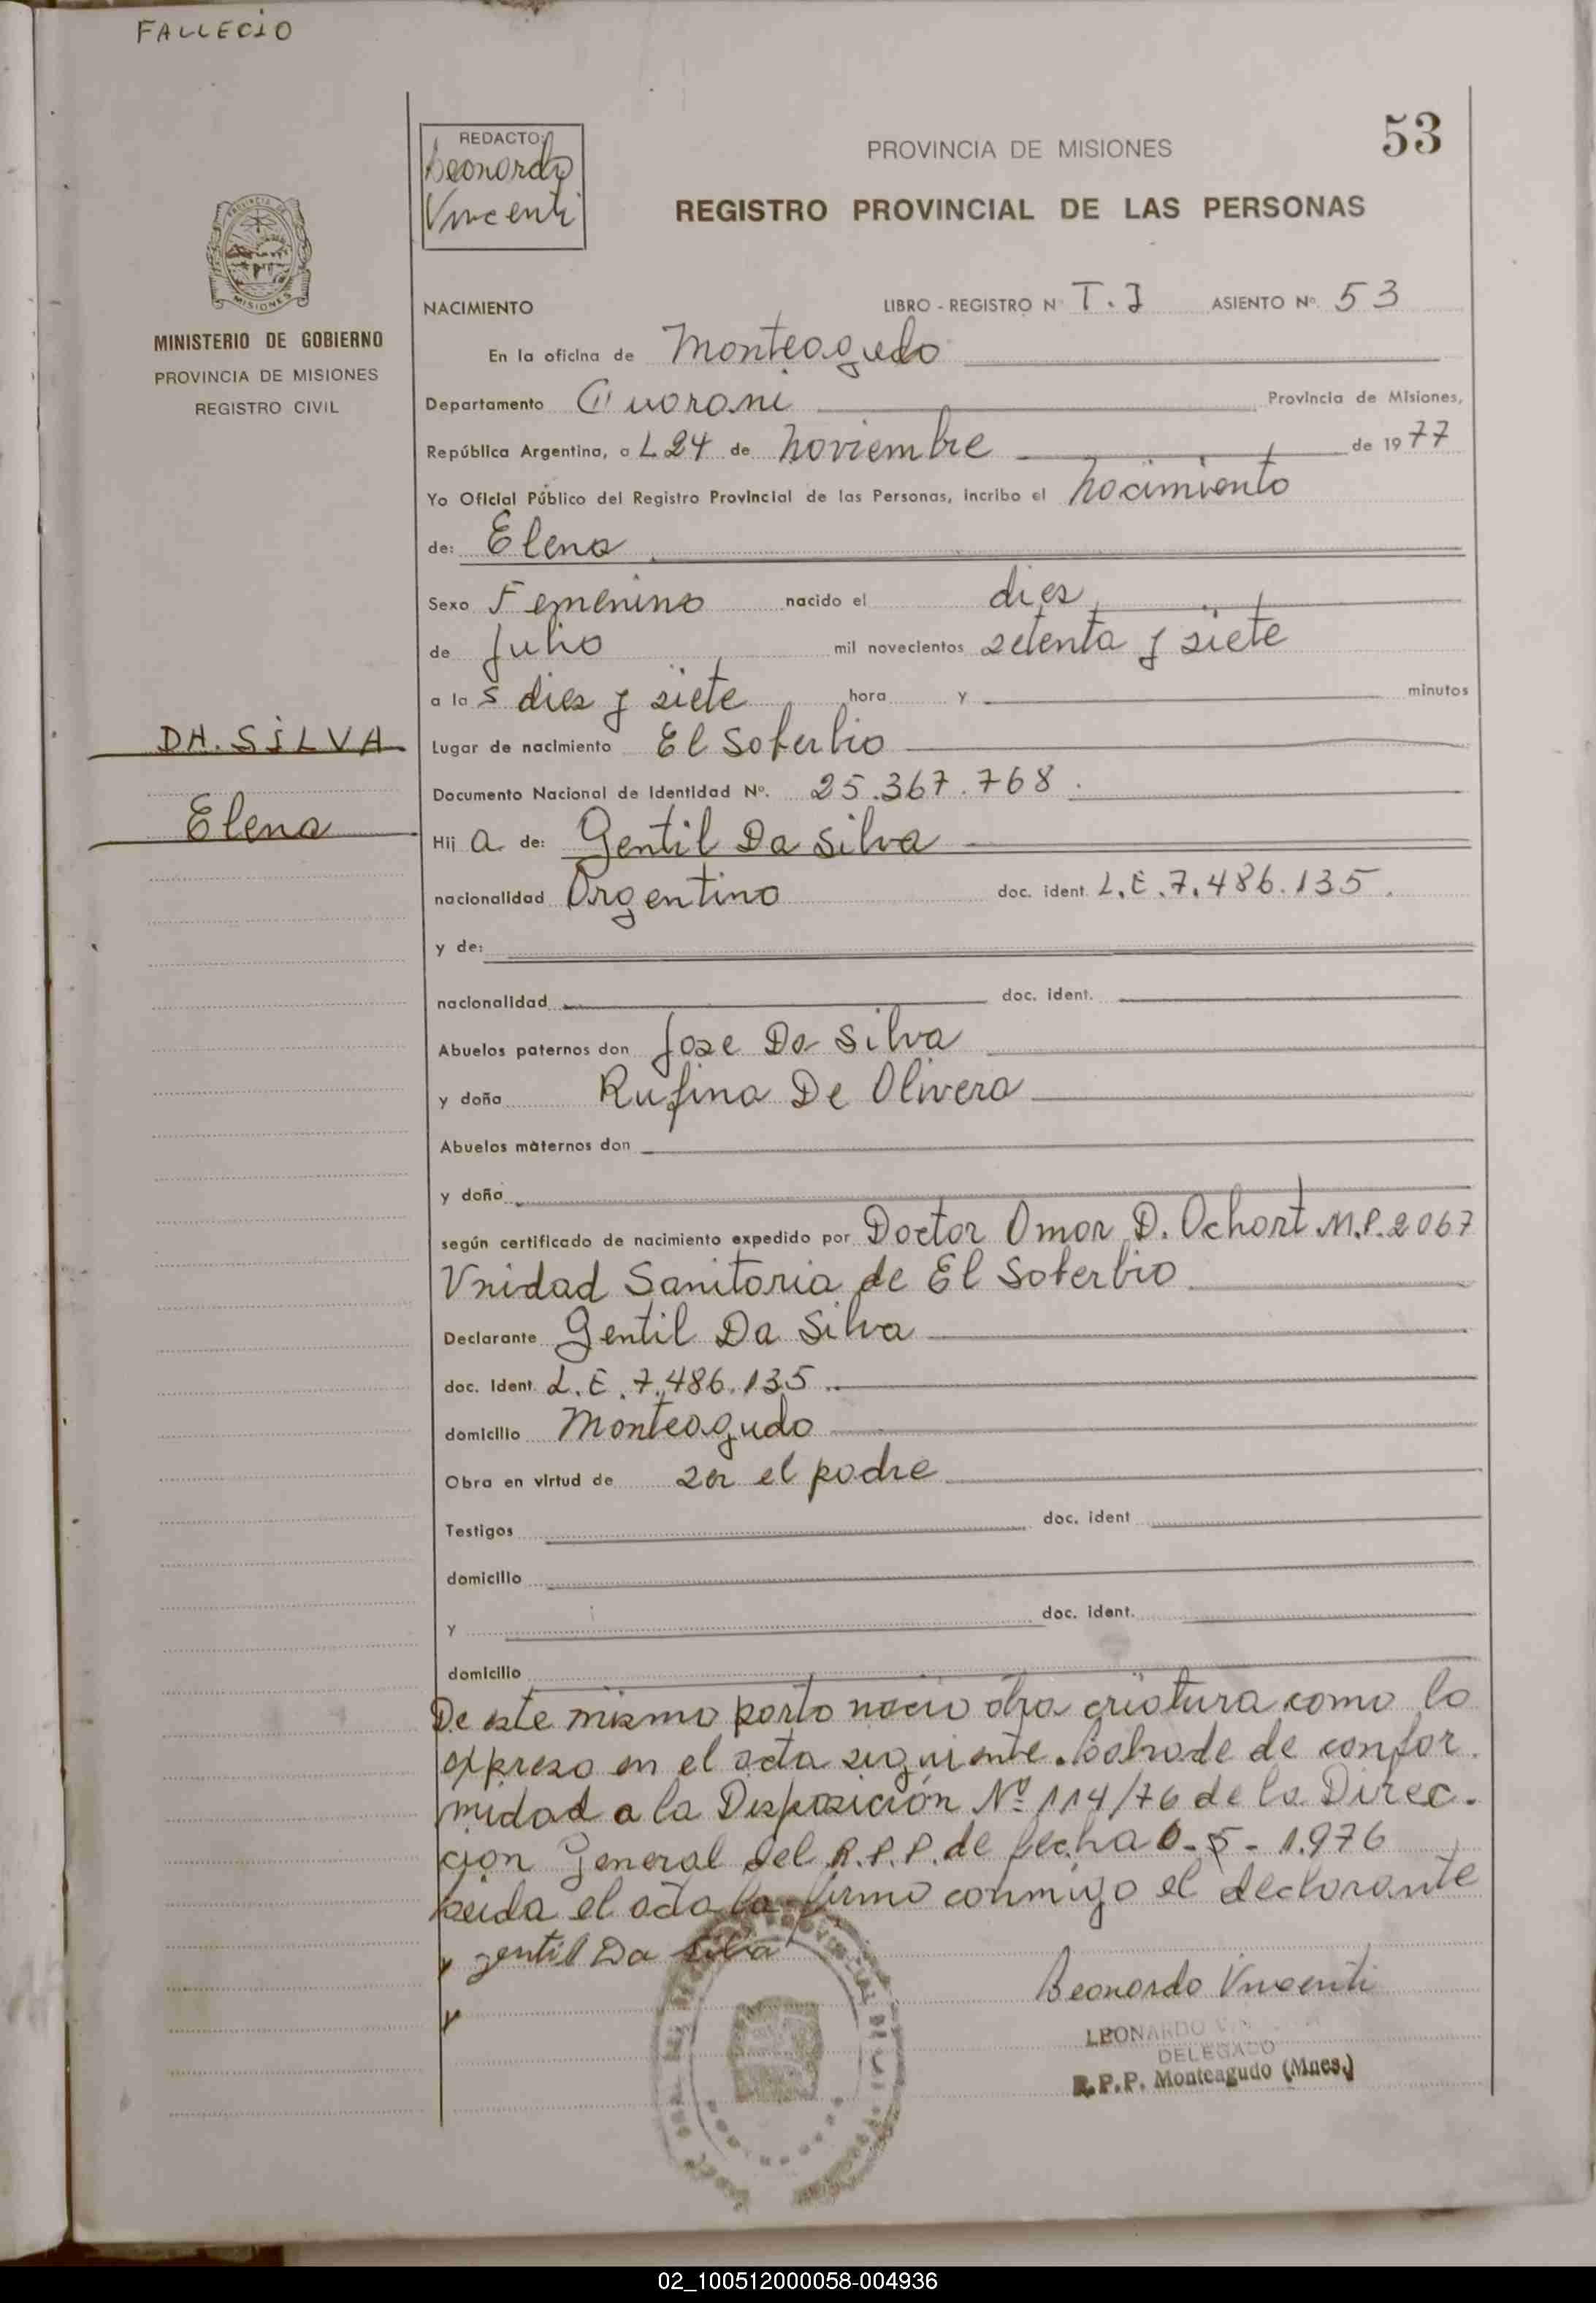 FALLECIO
53
REDACTO:
Leonardo
Vincenti
PROVINCIA DE MISIONES
REGISTRO PROVINCIAL DE LAS PERSONAS
MISIONES
MINISTERIO DE GOBIERNO
PROVINCIA DE MISIONES
REGISTRO CIVIL
NACIMIENTO LIBRO - REGISTRO Nº T.I ASIENTO Nº. 53
En la oficina de Monteagudo
Departamento Guarani Provincia de Misiones,
República Argentina, a L 24 de Noviembre de 1977
Yo Oficial Público del Registro Provincial de las Personas, incribo el nacimiento
de: Elena
Sexo Femenino nacido el dies
de Julio mil novecientos setenta y siete
a las dies y siete hora y minutos
DA. SILVA
Lugar de nacimiento El Soberbio
Documento Nacional de Identidad Nº. 25.367.768.
Elena
Hija de: Gentil Da Silva
nacionalidad Argentino doc. ident. L.E.7.486.135.
y de:
nacionalidad doc. ident.
Abuelos paternos don Jose Da Silva
y doña Rufina De Olivera
Abuelos maternos don
y doña
según certificado de nacimiento expedido por Doctor Omar D. Ochort M.P.2067
Unidad Sanitaria de El Soberbio
Declarante Gentil Da Silva
doc. Ident. L.E.7.486.135.
domicilio Monteagudo
Obra en virtud de ser el padre
Testigos doc. ident
domicilio
y doc. ident.
domicilio
De este mismo parto nacio otra criatura como lo
expreso en el acta siguiente. Labrade de confor
midad a la Disposición Nº 114/76 de la Direc.
cion General del R.P.P. de fecha 6-5-1.976
Leida el acta la firma conmigo el declarante
gentil Da Silva
Leonardo Vincenti
LEONARDO
DELEGADO
R.P.P. Monteagudo (Mnes.)
02_100512000058-004936